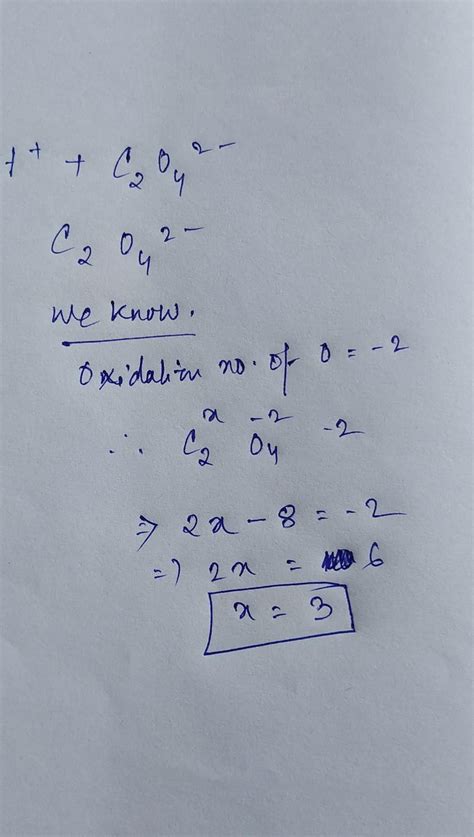 + + C₂O₄²⁻
C₂O₄²⁻
We know.
Oxidation no. of O = -2
x -2
∴ C₂ O₄ -2
⇒ 2x - 8 = -2
⇒ 2x = 6
x = 3